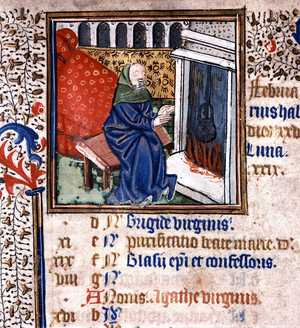 Februa
rius hab
dies xxv
Luna.
xxix.
d N Brigide virginis.
xi e N purificatio beate marie. D.
f N Blasij epi et confessoris.
viii g N
A Nonis. Agathe virginis.
xvi b